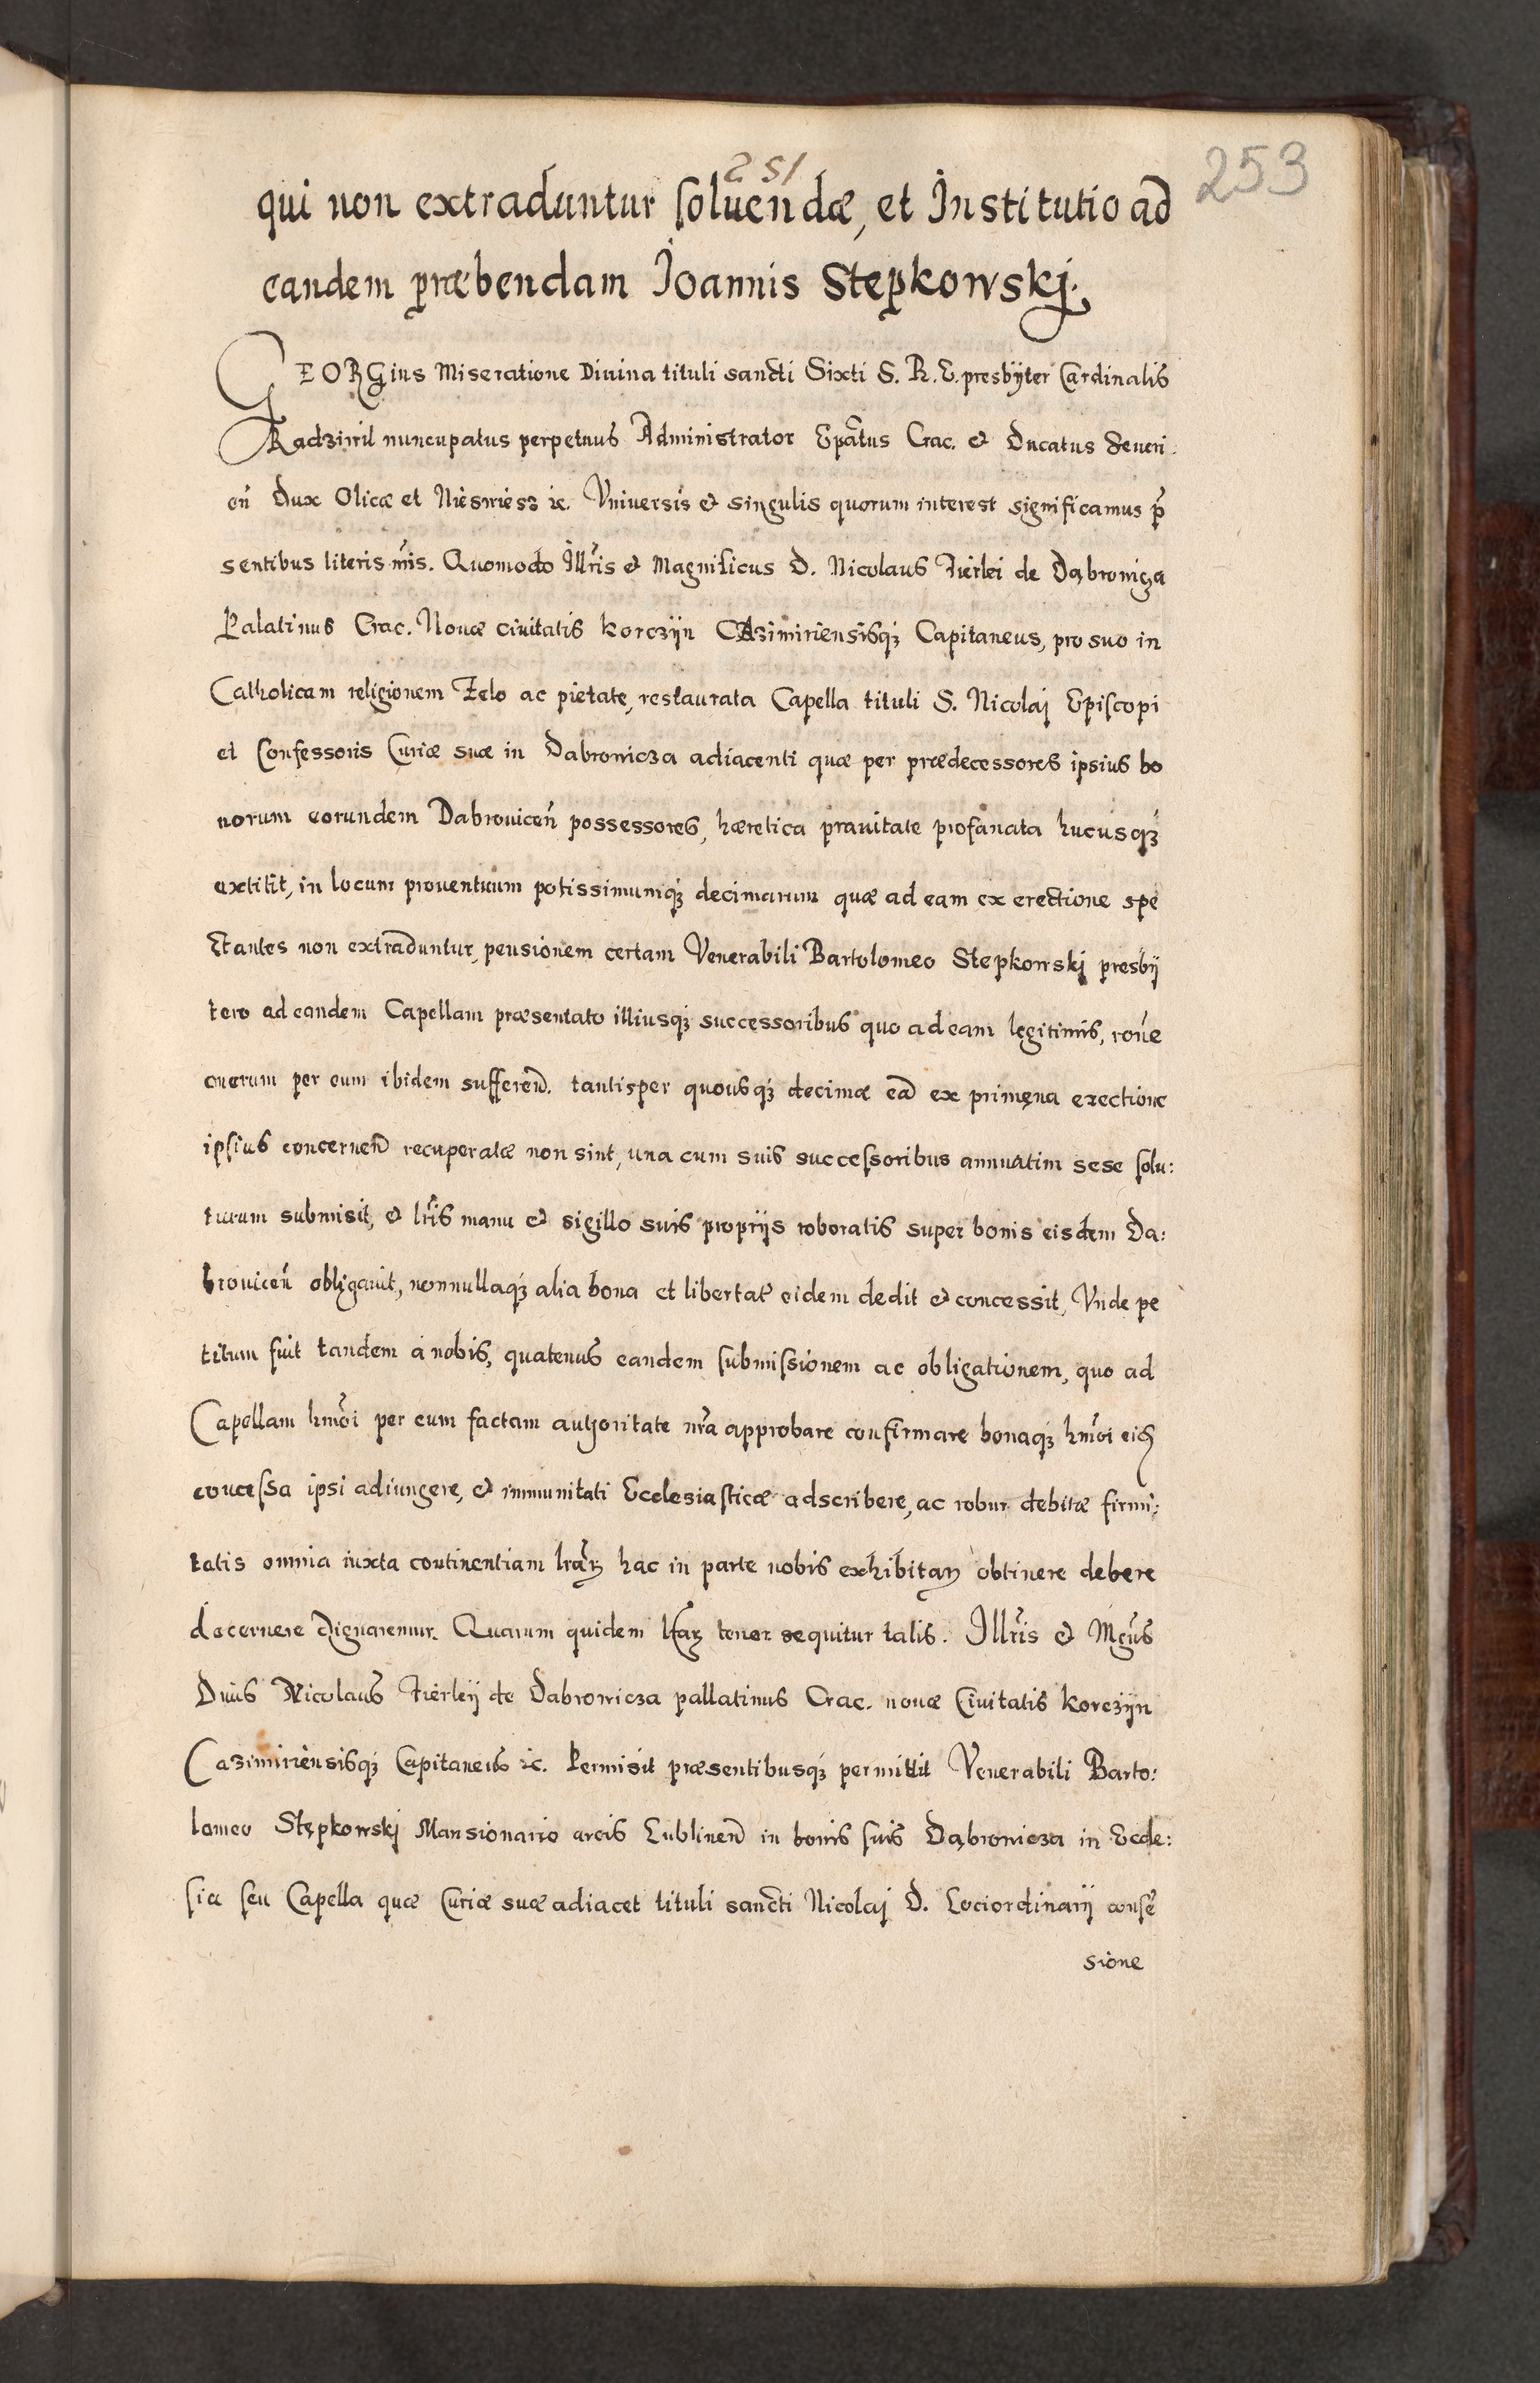 251
253
qui non extraduntur soluendæ, et Institutio ad
eandem præbendam Joannis Stepkowskj.
GEORGius Miseratione Diuina tituli sancti Sixti S. R. E. presbyter Cardinalis
Radziwil nuncupatus perpetuus Administrator Epãtus Crac. & Ducatus Seueri.
eñ Dux Olicæ et Nieswiesz ic. Vniuersis & singulis quorum interest significamus p̃
sentibus literis nr̃is. Quomodo Illr̃is & Magnificus D. Nicolaus Fierlei de Dąbrowicza
Palatinus Crac. Nouæ ciuitatis korczyn CAzimiriensisq3 Capitaneus, pro suo in
Catholicam religionem Zelo ac pietate, restaurata Capella tituli S. Nicolaj Episcopi
et Confessoris Curiæ suæ in Dabrowicza adiacenti quæ per prædecessores ipsius bo
norum eorundem Dabrouiceñ possessores, hæretica prauitate profanata hucusq3
extitit, in locum prouentuum potissimumq3 decimarum quæ ad eam ex erectione spe
ctantes non extraduntur, pensionem certam Venerabili Bartolomeo Stepkowskj presby
tero ad eandem Capellam præsentato illiusq3 successoribus quo ad eam legitimis, rõne
onerum per eum ibidem sufferend. tantisper quousq3 decimæ ead ex primęua erectione
ipsius concernend recuperatæ non sint, una cum suis successoribus annuatim sese solu:
turum submisit, & lr̃is manu & sigillo suis proprijs roboratis super bonis eisdem Da:
brouiceñ obligauit, nonnullaq3 alia bona et libertat eidem dedit & concessit, Vnde pe
titum fuit tandem à nobis, quatenus eandem submissionem ac obligationem, quo ad
Capellam hmõi per eum factam authoritate nr̃a approbare confirmare bonaq3 hmõi eid
concessa ipsi adiungere, & immunitati Ecclesiasticæ adscribere, ac robur debitæ firmi:
tatis omnia iuxta continentiam lrãꝝ hac in parte nobis exhibitaꝝ obtinere debere
decernere dignaremur. Quarum quidem lraꝝ tenor sequitur talis. Illr̃is & Mgñus
Dñus Nicolaus Fierleij de Dabrowicza pallatinus Crac. nouæ Ciuitatis korczyn
Cazimiriensisq3 Capitaneus ic. Permisit præsentibusq3 permittit Venerabili Barto:
lomeo Stępkowskj Mansionario arcis Lublinen in bonis suis Dąbrowicza in Eccle:
sia seu Capella quæ Curiæ suæ adiacet tituli sancti Nicolaj D. Lociordinarij consẽ
sione